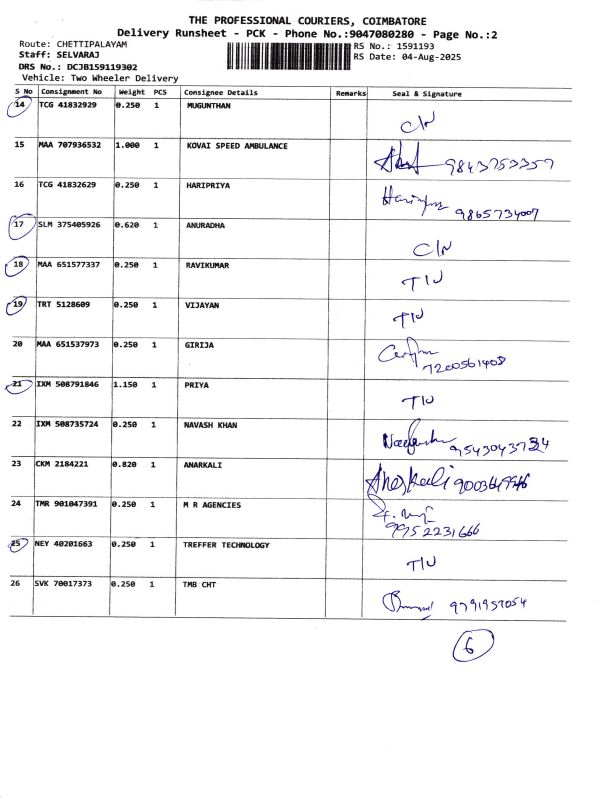 THE PROFESSIONAL COURIERS, COIMBATORE
Delivery Runsheet - PCK - Phone No.:9047080280 - Page No.:2
Route: CHETTIPALAYAM RS No.: 1591193
Staff: SELVARAJ RS Date: 04-Aug-2025
DRS No.: DCJB159119302
Vehicle: Two Wheeler Delivery
S No Consignment No Weight PCS Consignee Details Remarks Seal & Signature
14 TCG 41832929 0.250 1 MUGUNTHAN
C/N
15 MAA 707936532 1.000 1 KOVAI SPEED AMBULANCE
9843753357
16 TCG 41832629 0.250 1 HARIPRIYA
9865734007
17 SLM 375405926 0.620 1 ANURADHA
C/N
18 MAA 651577337 0.250 1 RAVIKUMAR
TIU
19 TRT 5128609 0.250 1 VIJAYAN
TIU
20 MAA 651537973 0.250 1 GIRIJA
7200561408
21 IXM 508791846 1.150 1 PRIYA
TIU
22 IXM 508735724 0.250 1 NAVASH KHAN
23 CKM 2184221 0.820 1 ANARKALI
24 TMR 901047391 0.250 1 M R AGENCIES
9952231666
25 NEY 40201663 0.250 1 TREFFER TECHNOLOGY
TIU
26 SVK 70017373 0.250 1 TMB CHT
9791957054
6